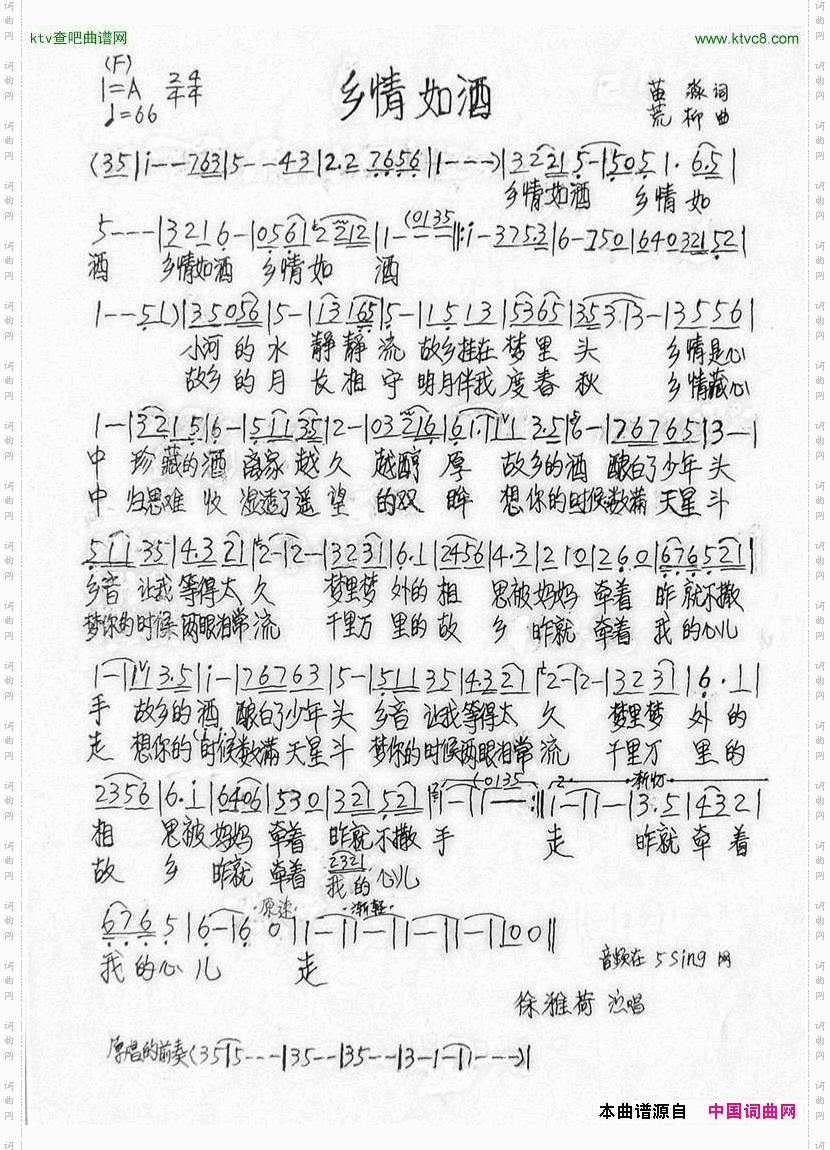 ktv查吧曲谱网 www.ktvc8.com
(F)
1=A 2/4 4/4
♩=66
乡情如酒
苗淼词
荒柳曲
(35|i--763|5--43|2.2 7656|1---)|3221 5-|1505 1.65|
乡情如酒 乡情如
5---|3216-|0561 2212|1-(0135||:i-375.3|6-750|640321521|
酒 乡情如酒 乡情如 酒
1--51)|35056|5-|13165|5-|1513|5365|353.13-|3556|
小河的水 静静流 故乡挂在梦里头 乡情是心
故乡的月 长相守 明月伴我度春秋 乡情藏心
1-|3215|6-|51135|2-|03216|61.1|113.5|6-|76765|3-|
中 珍藏的酒 离家越久 越醇厚 故乡的酒 酿白了少年头
中 归思难收 湿透了遥望 的双眸 想你的时候数满天星斗
51135|4.321|2-|2-|3231|6.1|2456|4.3|210|260|676521|
乡音让我等得太久 梦里梦外的相思被妈妈牵着 昨就不撒
梦你的时候两眼泪常流 千里万里的故乡 昨就牵着我的心儿
1-|113.5|i-|76763|5-|51135|4.321|2-|2-|3231|6.1|
手 故乡的酒 酿白了少年头 乡音让我等得太久 梦里梦外的
走 想你的时候数满天星斗 梦你的时候两眼泪常流 千里万里的
2356|6.i|6406|530|32152|1-|1--(0135:||1-|1-|3.5|4321|
渐慢
相思被妈妈牵着 昨就不撒手 走 昨就牵着
故乡 昨就牵着 我的心儿
2321
6765|6-|60|1-|1-|1-|1-|1-|100||
原速 渐轻
我的心儿 走
音频在5Sing网
徐雅荷 演唱
原唱的前奏(35|5---|35--|35--|3-1-|1---)|
本曲谱源自 中国词曲网
词曲网